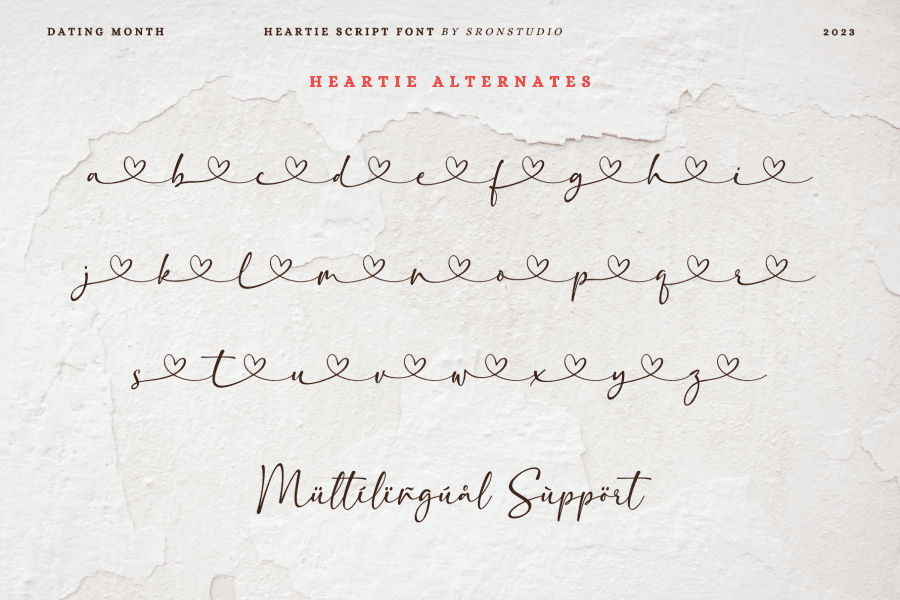 DATING MONTH HEARTIE SCRIPT FONT BY SRONSTUDIO 2023
HEARTIE ALTERNATES
a b c d e f g h i
j k l m n o p q r
s t u v w x y z
Mültílïñgúål Sùppört